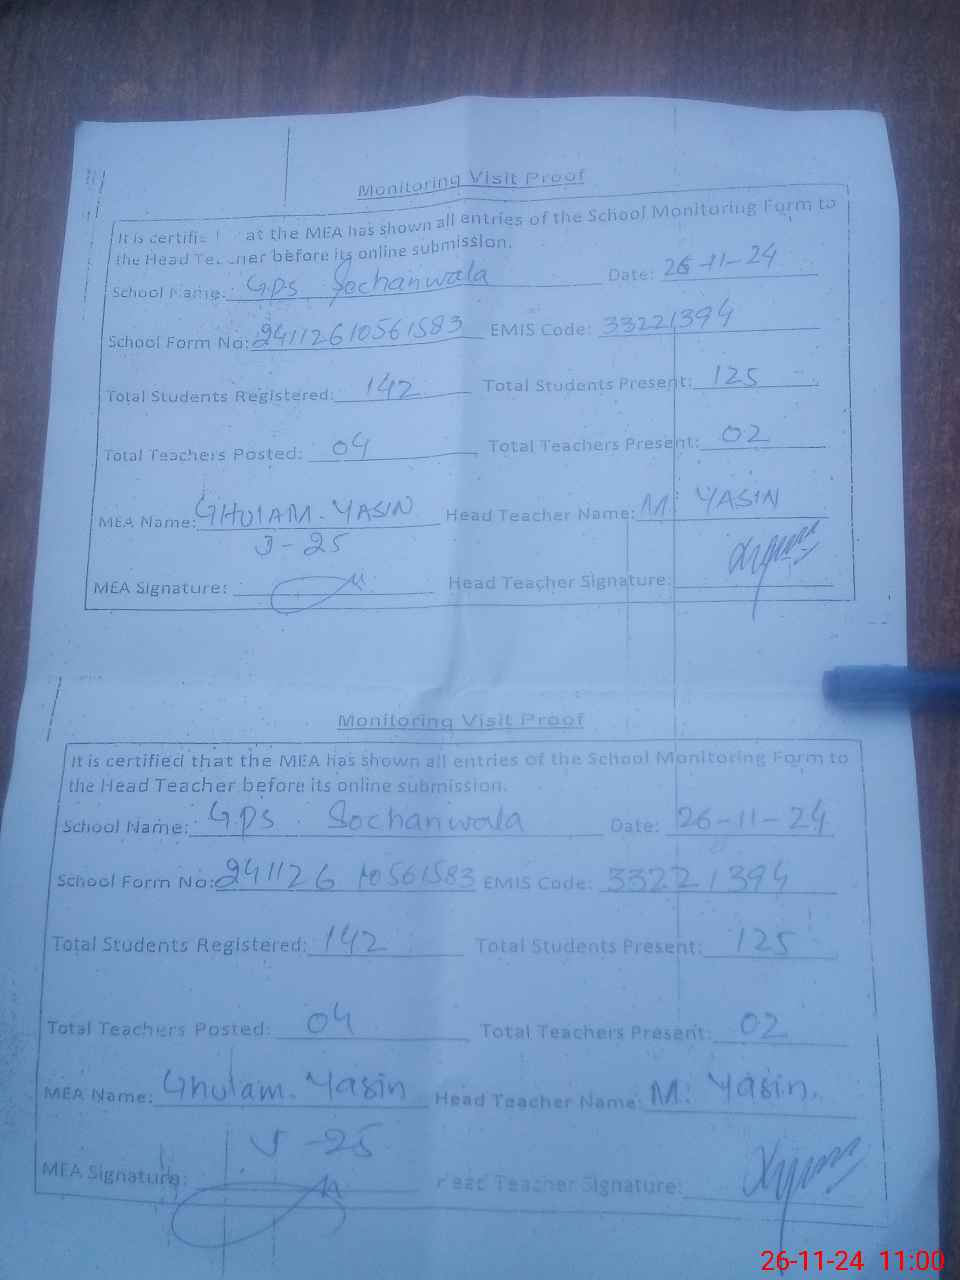 Monitoring Visit Proof
It is certifie at the MEA has shown all entries of the School Monitoring Form to
the Head Te cher before its online submission.
School Name: GPS Sochanwala Date: 26-11-24
School Form No: 24112610561583 EMIS Code: 33221394
Total Students Registered: 142 Total Students Present: 125
Total Teachers Posted: 04 Total Teachers Present: 02
MEA Name: GHULAM. YASIN Head Teacher Name: M. YASIN
J-25
MEA Signature: Head Teacher Signature:
Monitoring Visit Proof
It is certified that the MEA has shown all entries of the School Monitoring Form to
the Head Teacher before its online submission.
School Name: GPS Sochanwala Date: 26-11-24
School Form No: 241126 10561583 EMIS Code: 33221394
Total Students Registered: 142 Total Students Present: 125
Total Teachers Posted: 04 Total Teachers Present: 02
MEA Name: Ghulam. Yasin Head Teacher Name: M. Yasin.
J-25
MEA Signature: Head Teacher Signature:
26-11-24 11:00